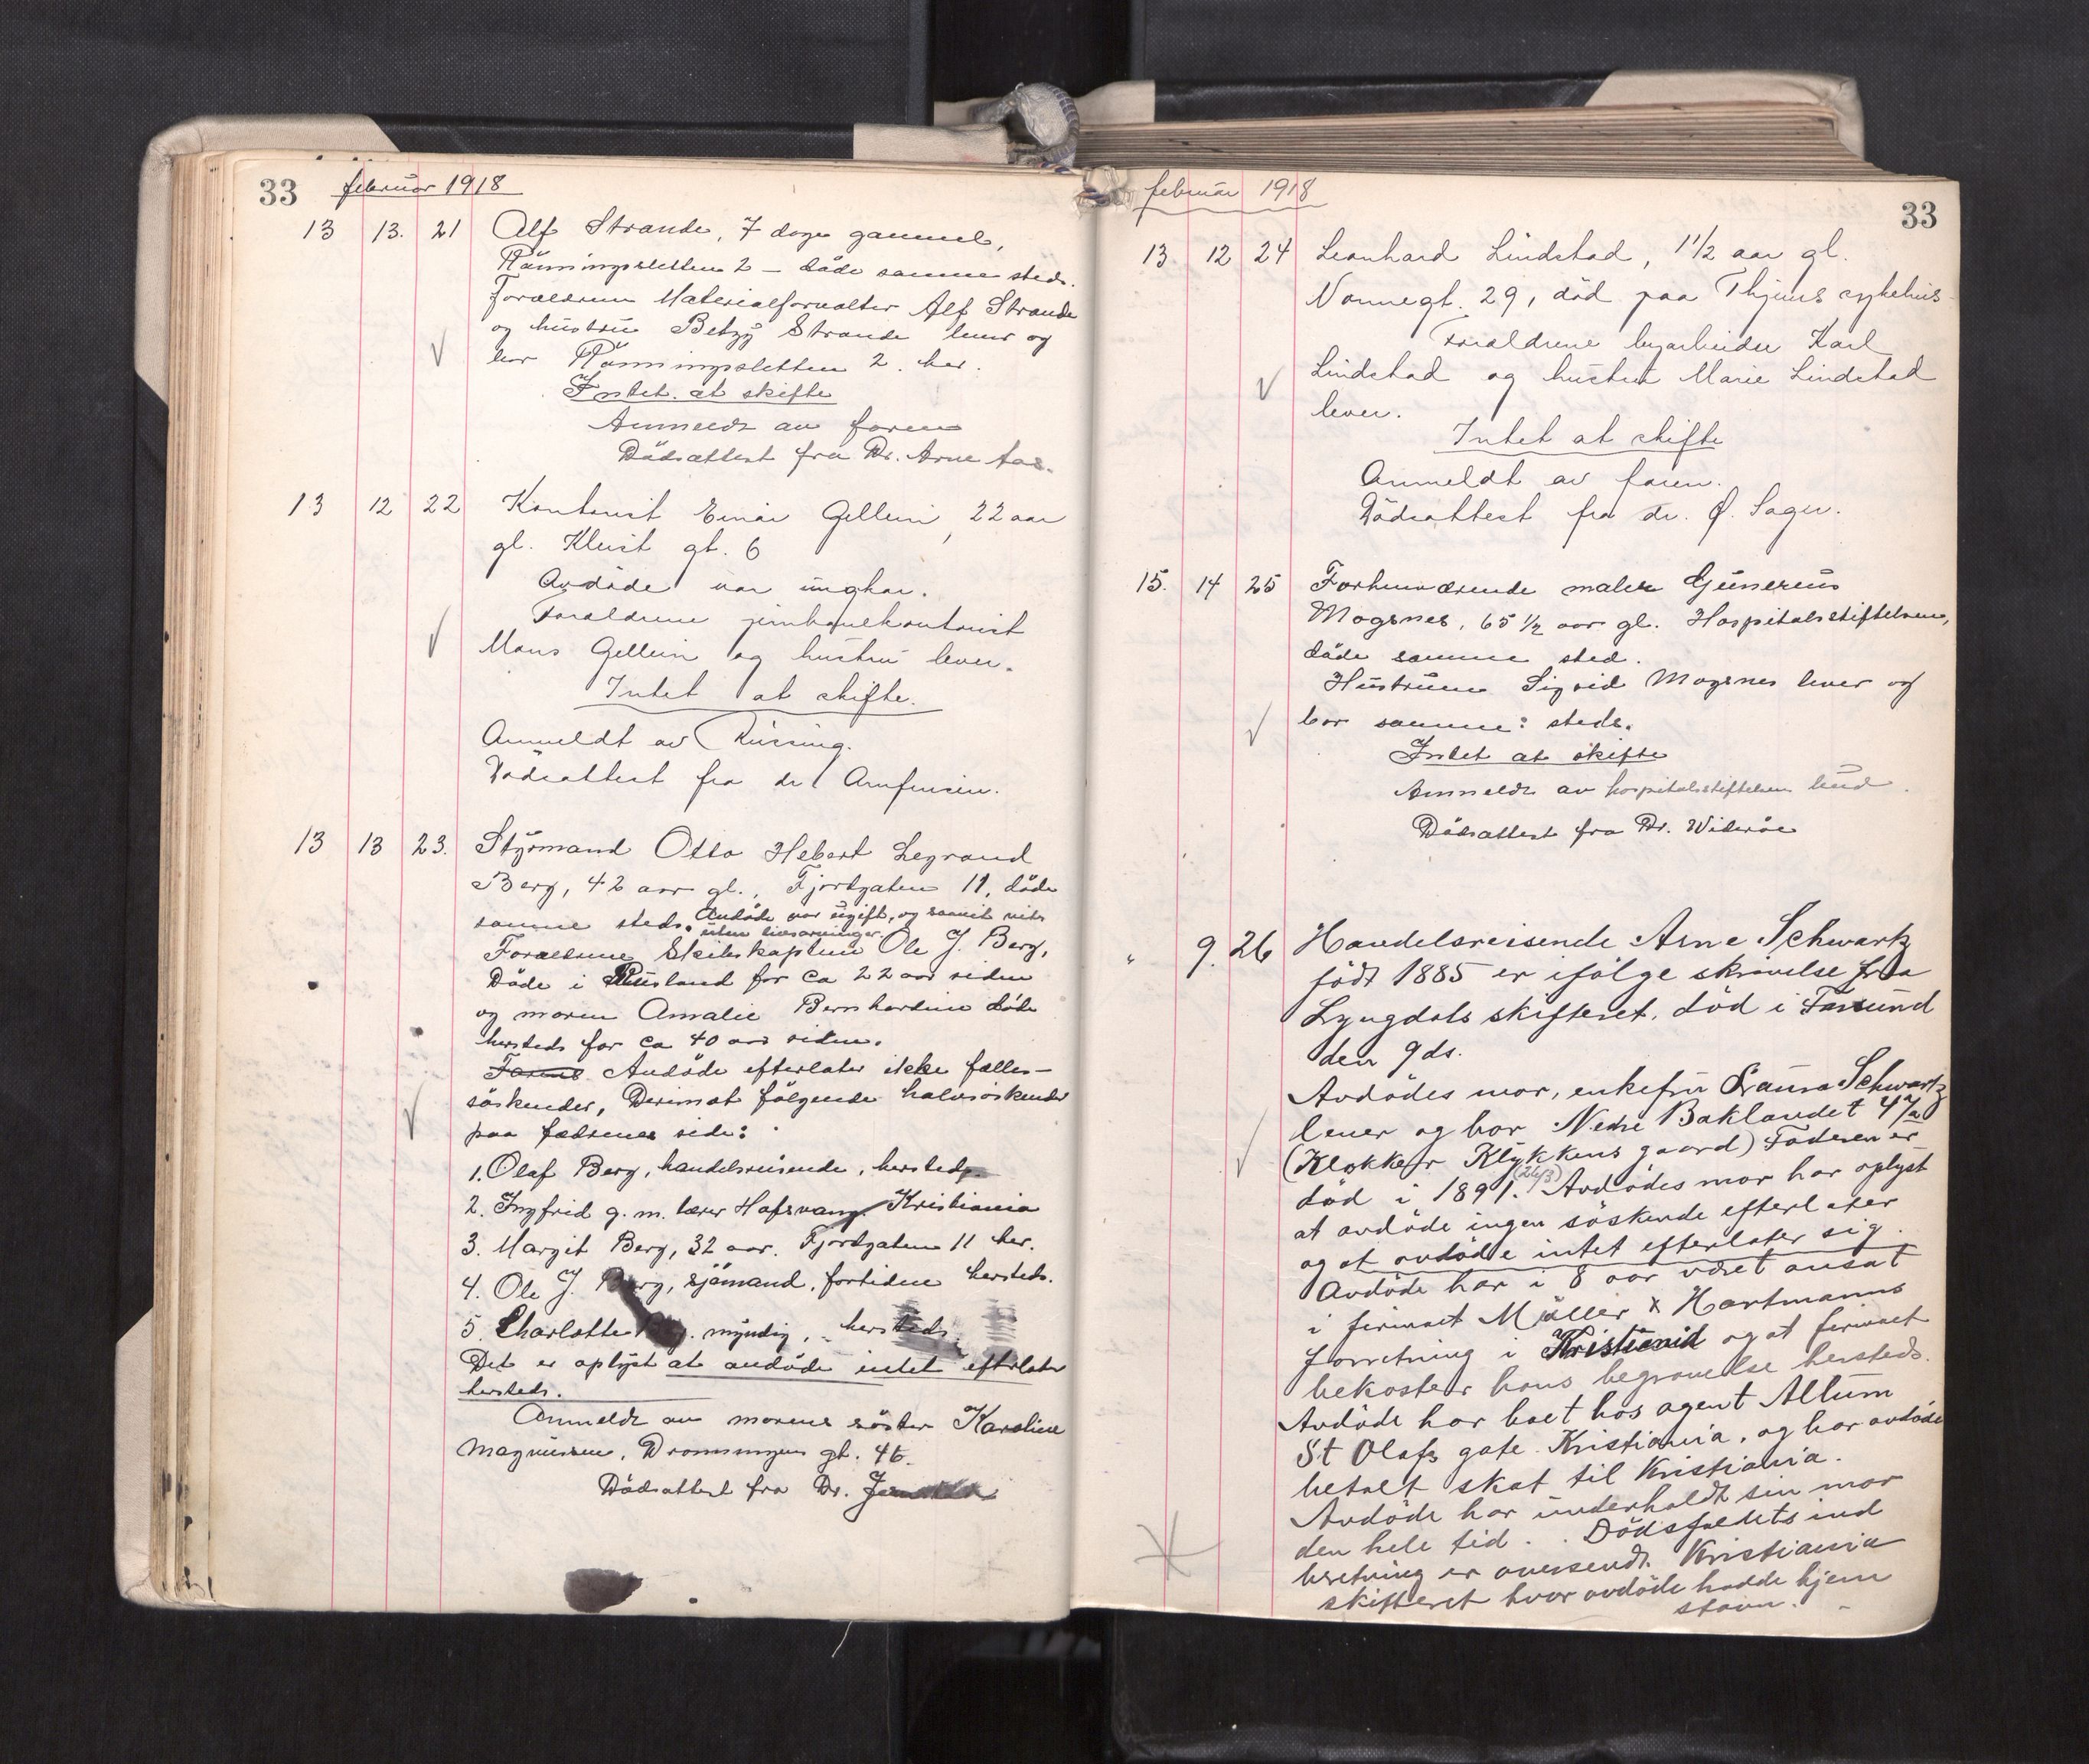 33 februar 1918
13 13. 21 Alf Strande, 7 dage gammel,
Rönningsletten 2 – döde samme steds.
Foreldrene Materialforvalter Alf Strande
og hustru Betzy Strande lever og
bor Rönningsletten 2. her.
Intet at skifte
Anmeldt av faren
Dödsattest fra Dr. Arne Aas.
13 12 22 Kontorist Einar Gellein, 22 aar
gl. Kleist gt. 6
Avdöde var ungkar.
Foreldrene jernbanekontorist
Mons Gellein og hustru lever.
Intet at skifte.
Anmeldt av
Dödsattest fra dr Arnfinsen.
13 13 23. Styrmand Otto Hebert Legrand
Berg, 42 aar gl., Fjordgaten 11, döde
samme steds. Avdöde var ugift, og saavit vites
uten livsarvinger.
Foreldrene Skibskaptein Ole J. Berg,
Döde i Rusland for ca 22 aar siden
og moren Amalie Bernhardine döde
hersteds for ca 40 aar siden.
Farens Avdöde efterlater ikke fælles-
söskender, Derimot fölgende halvsöskender
paa fædrenes side:
1. Olaf Berg, handelsreisende, hersteds.
2. Ingfrid g. m. lærer Hofsvang. Kristiania
3. Margit Berg, 32 aar. Fjordgaten 11 her.
4. Ole J. Berg, sjömand, fortiden hersteds.
5. Charlotte myndig, hersteds.
Det er oplyst at avdöde intet efterlater
hersteds.
Anmeldt av morens söster Karoline
Magnussen, Dronningens gt. 46.
Dödsattest fra Dr.
februar 1918
33
13 12 24 Leonhard Lindstad, 1 1/2 aar gl.
Nonnegt. 29, död paa Thjems sykehus
Forældrene byarbeider Karl
Lindstad og hustru Marie Lindstad
lever.
Intet at skifte
Anmeldt av faren.
Dödsattest fra dr. Ø. Sager.
15. 14 25 Forhenværende maler Gunerius
Mogsnes, 65 1/2 aar gl. Hospitalsstiftelsen,
döde samme sted.
Hustruen Sigrid Mogsnes lever og
bor samme: steds.
Intet at skifte
Anmeldt av hospitalsstiftelsen bud.
Dödsattest fra Dr. Wideröe
" 9. 26 Handelsreisende Arne Schwartz
född 1885 er ifölge skrivelse fra
Lyngdals skifteret, död i Farsund
den 9 ds.
Avdödes mor, enkefru Laura Schwartz
lever og bor Nedre Baklandet 47a
(Klokker Klykkens gaard) Faderen er
död i 1891. (26/3) Avdödes mor har oplyst
at avdöde ingen söskende efterlater
og at avdöde intet efterlater sig.
Avdöde har i 8 aar været ansat
i firmaet Möller & Hartmanns
forretning i Kristiania og at firmaet
bekoster hans begravelse hersteds.
Avdöde har boet hos agent Altum
St Olafs gate Kristiania, og har avdöde
betalt skat til Kristiania.
Avdöde har underholdt sin mor
den hele tid. Dödsfaldets ind
beretning er oversendt Kristiania
skifteret hvor avdöde hadde hjem
stavn.